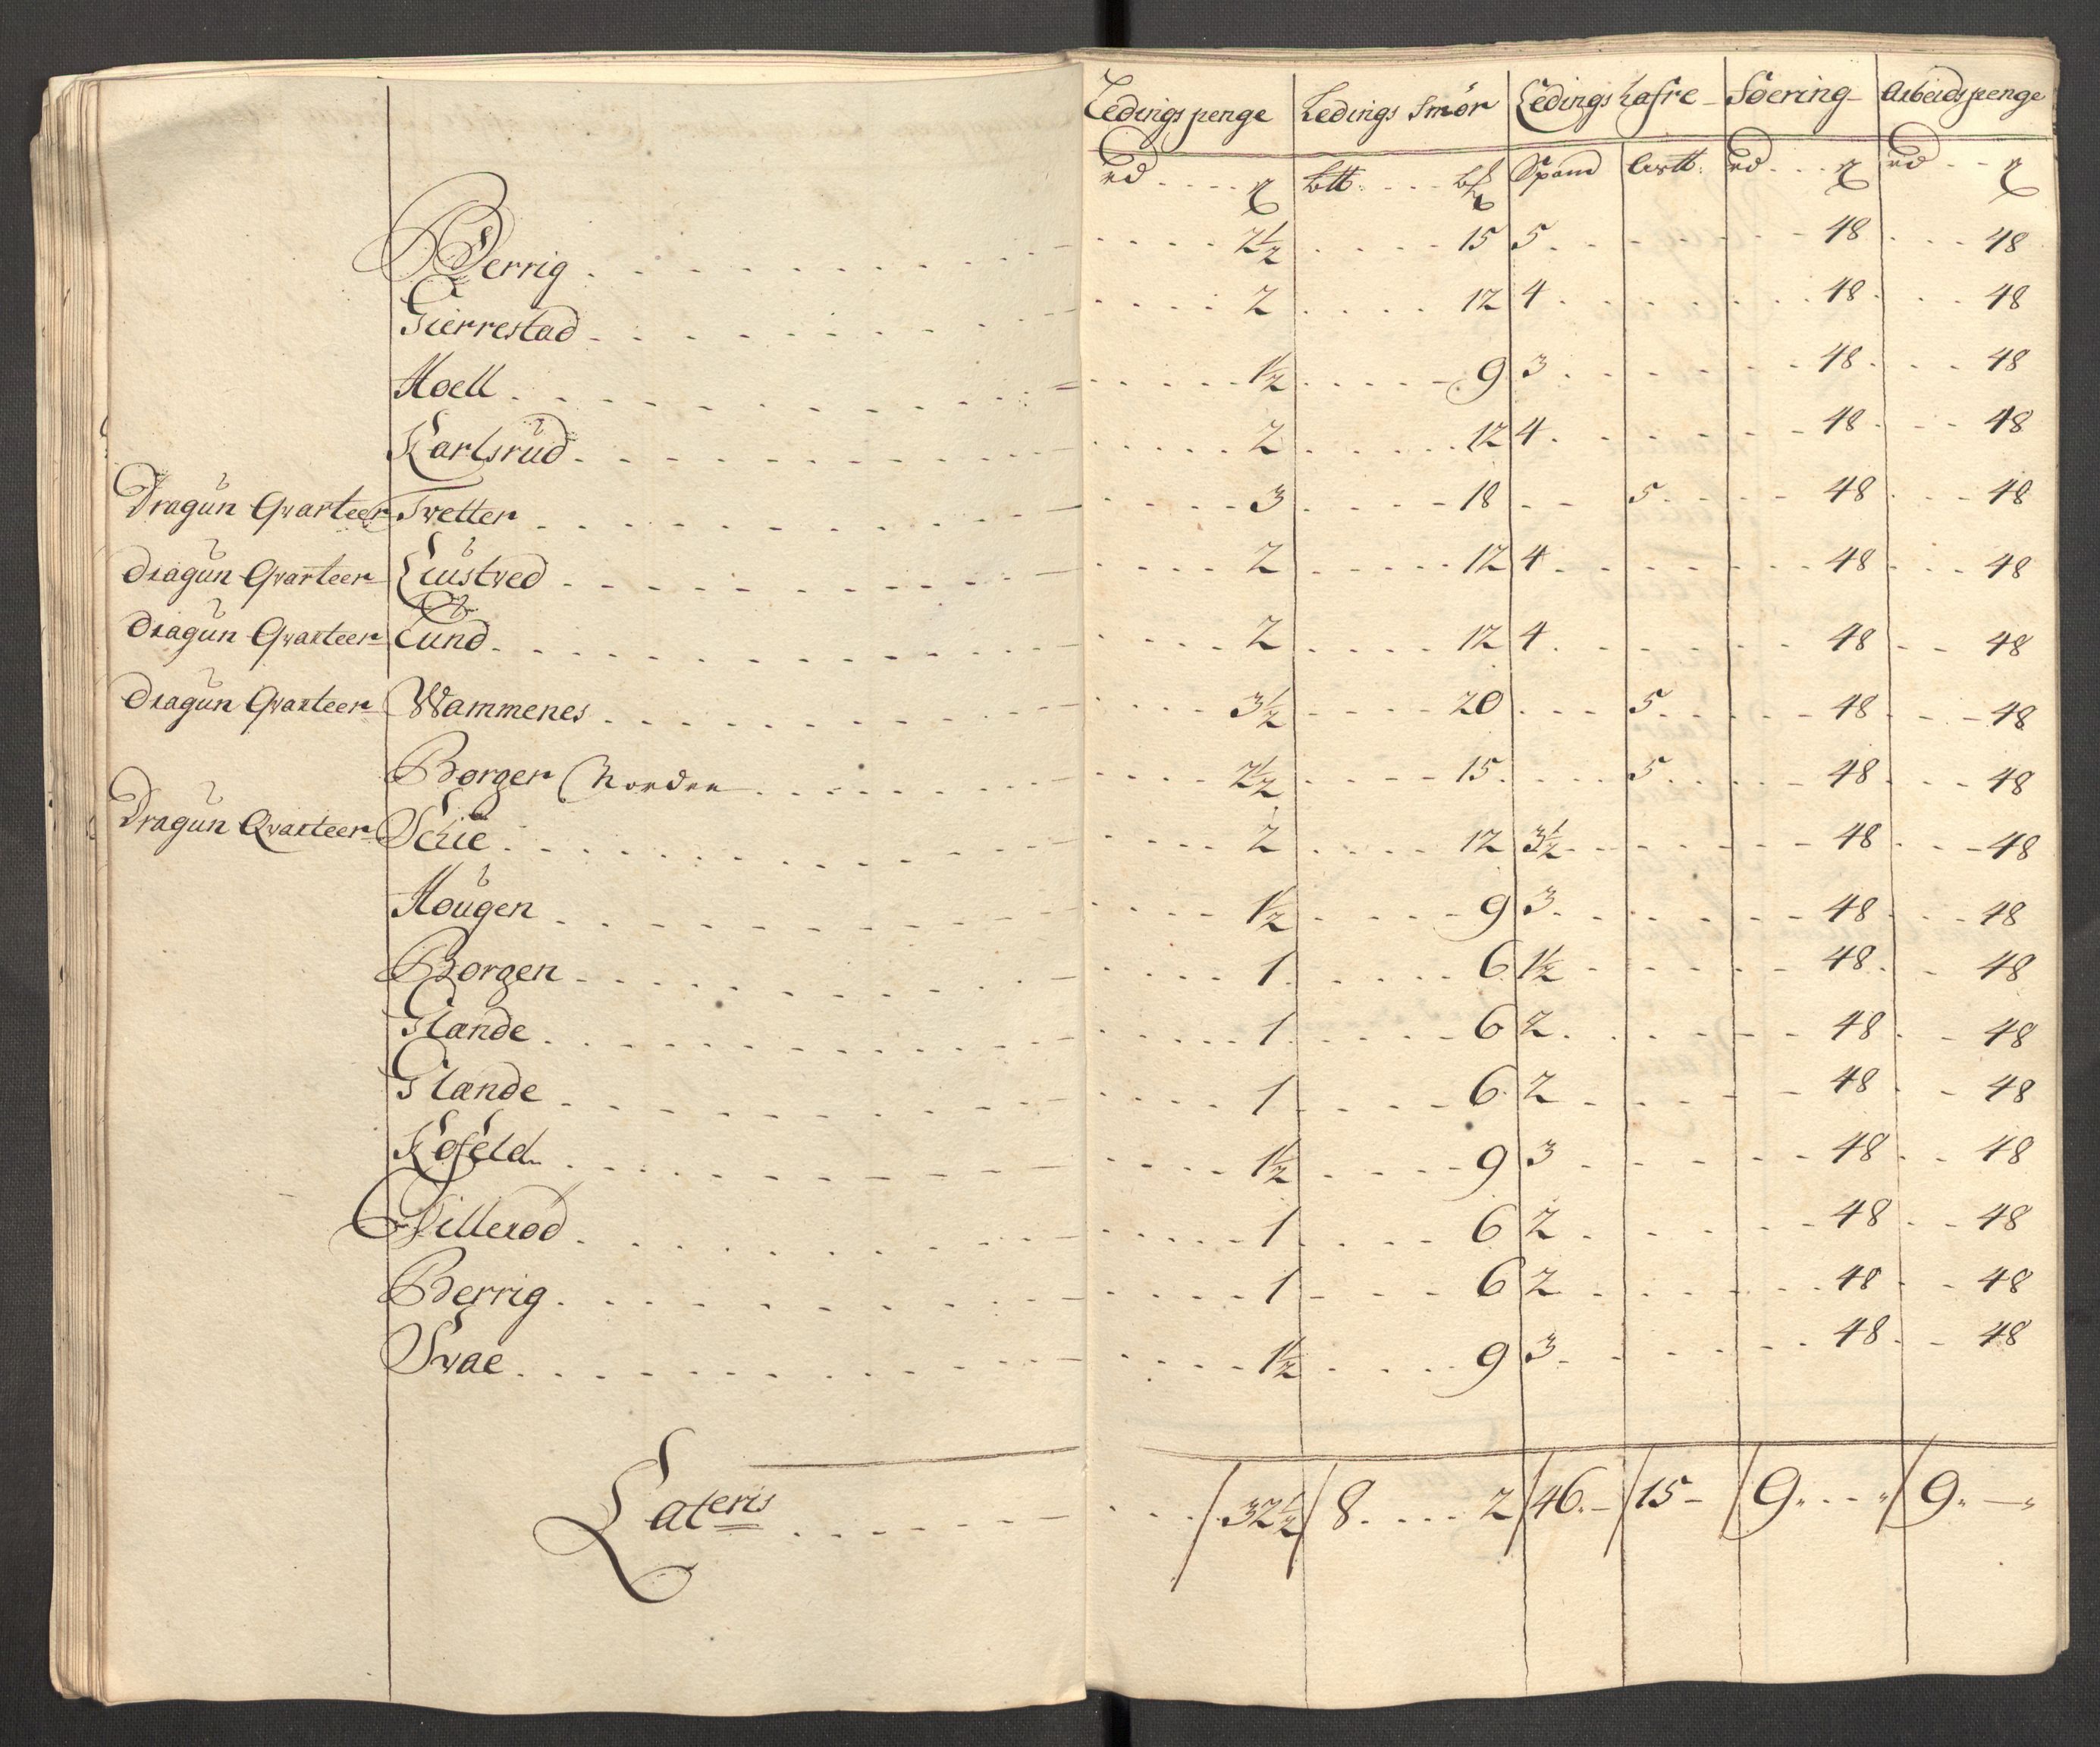 Ledings penge Ledings Smör Ledings hafre Söering Arbeids penge
rd ß btt: bſ Spand rd ß rd ß
Berrig 2½ 15 5 48 48
Gierrestad 2 12 4 48 48
Hoell 1½ 9 3 48 48
Karlsrud 2 12 4 48 48
Dragun Qvarteer Tvetter 3 18 5 48 48
Dragun Qvarteer Liustved 2 12 4 48 48
Dragun Qvarteer Lund 2 12 4 48 48
Dragun Qvarteer Wammenes 3½ 20 5 48 48
Borger Norden 2½ 15 5 48 48
Dragun Qvarteer Schie 2 12 3½ 48 48
Hougen 1½ 9 3 48 48
Borgen 1 6 1½ 48 48
Glande 1 6 2 48 48
Glande 1 6 2 48 48
Kofeld 1½ 9 3 48 48
Hilleröd 1 6 2 48 48
Berrig 1 6 2 48 48
Svae 1½ 9 3 48 48
Lateris 32½ 8 2 46 15 9 9